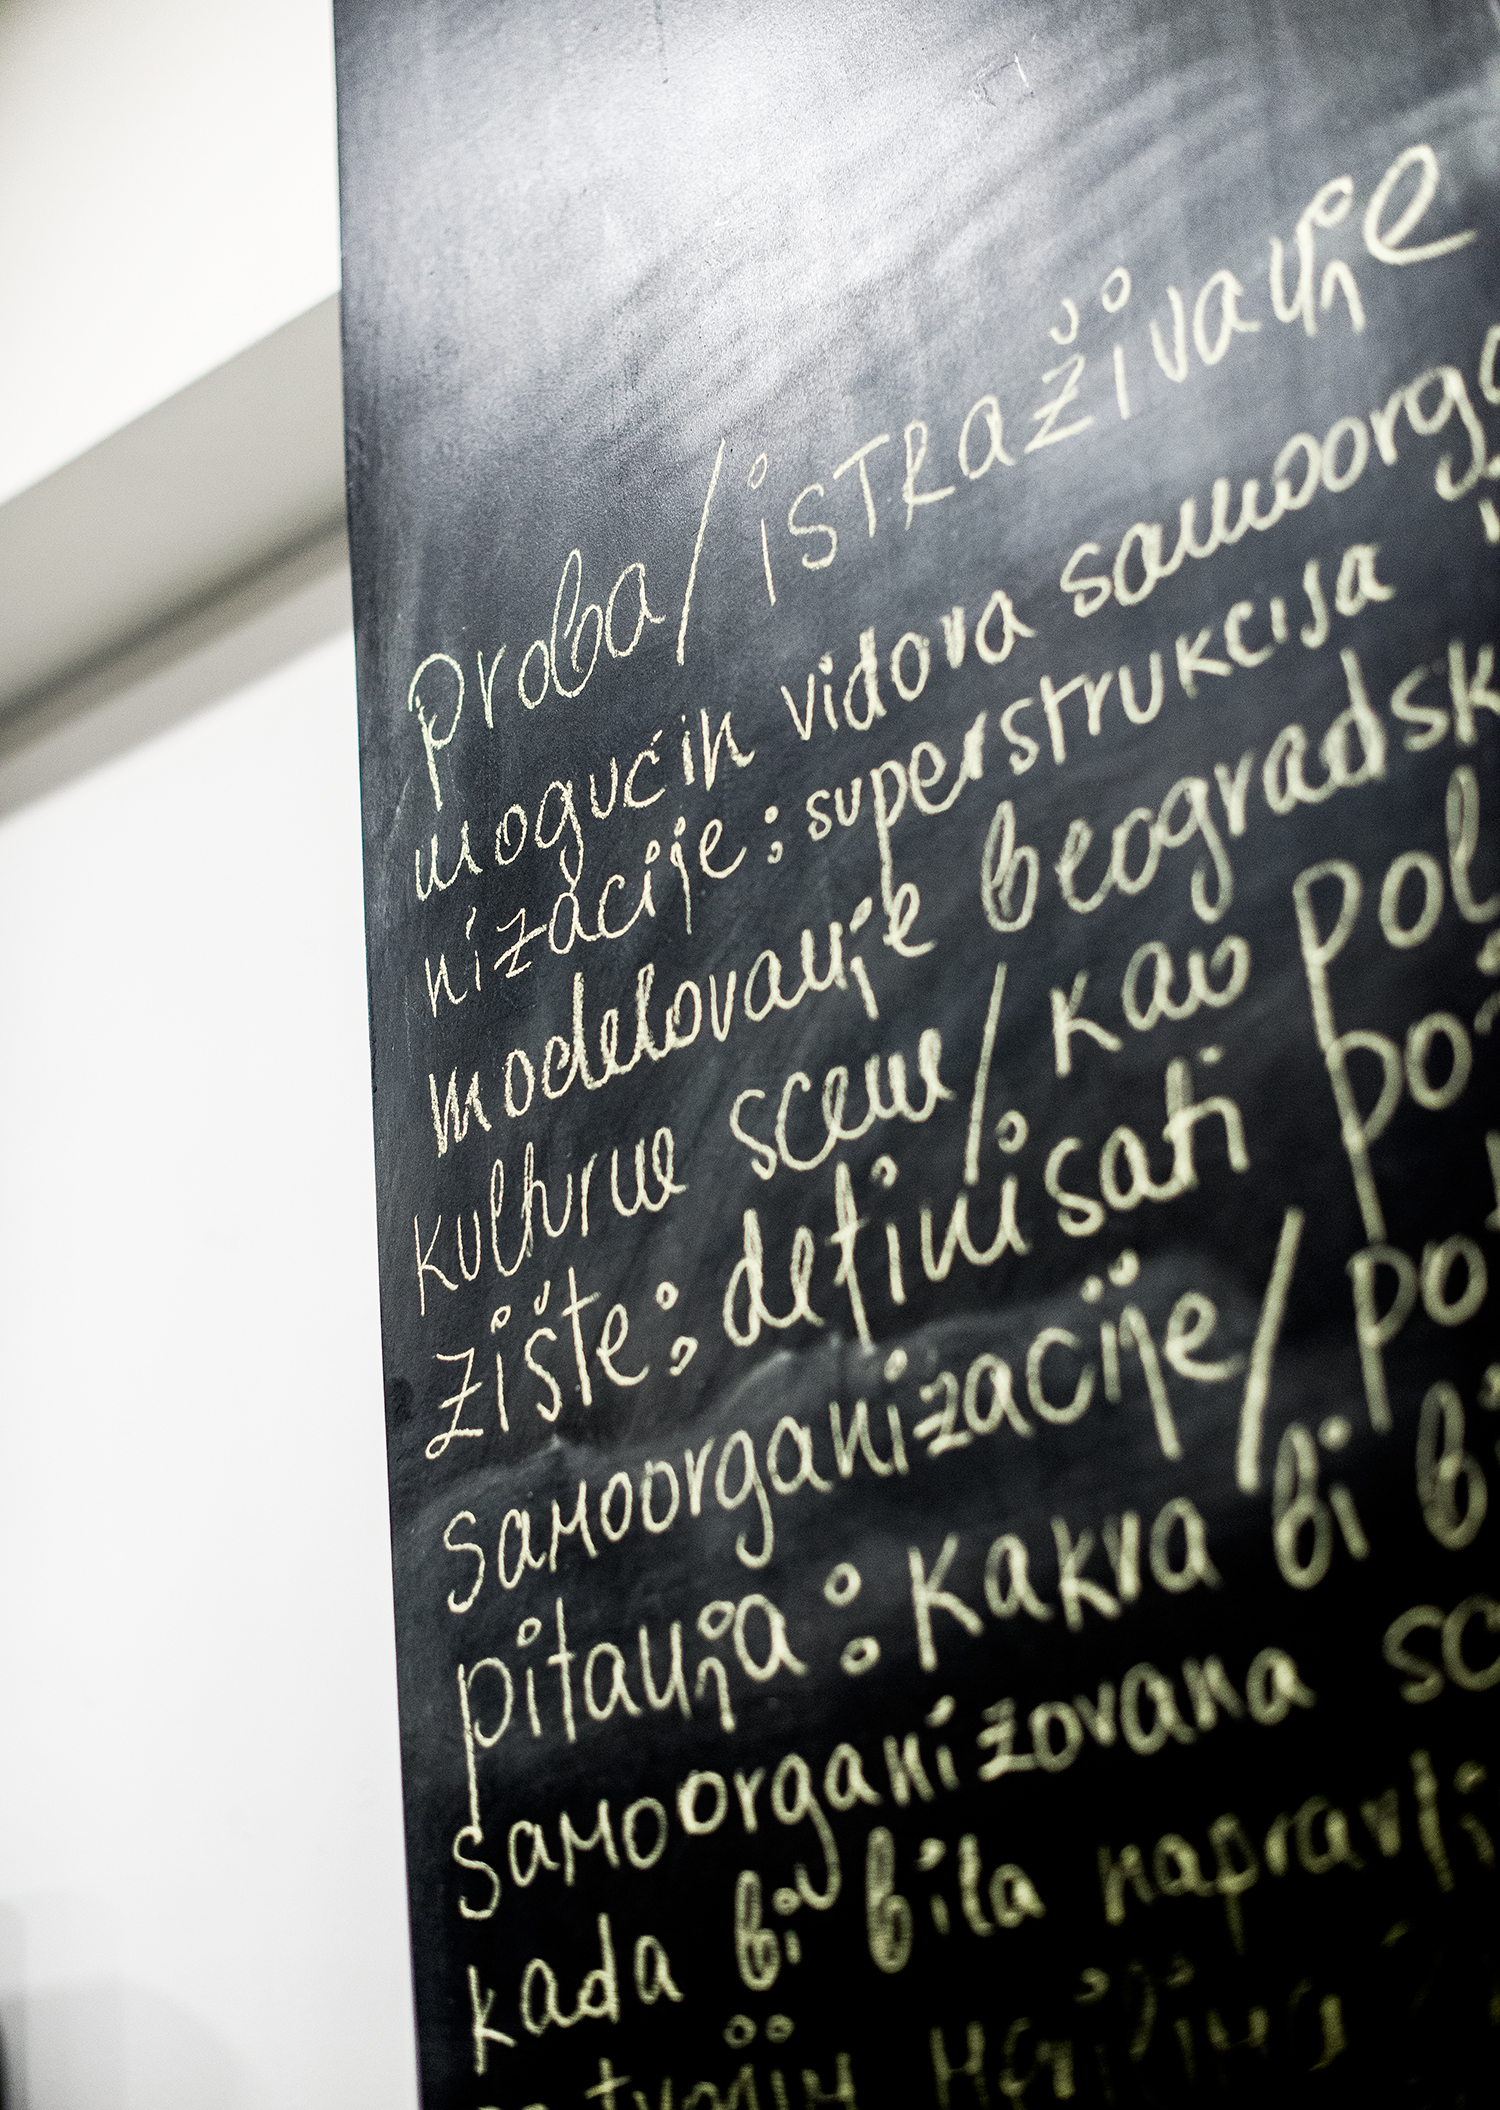 Proba/istraživanje
mogućih vidova samoorga
nizacije: superstrukcija
modelovanje beogradsk
kulturne scene/kao pol
zište: definisati po
samoorganizacije/po
pitanja: kakva bi bi
samoorganizovana sc
kada bi bila napravlj